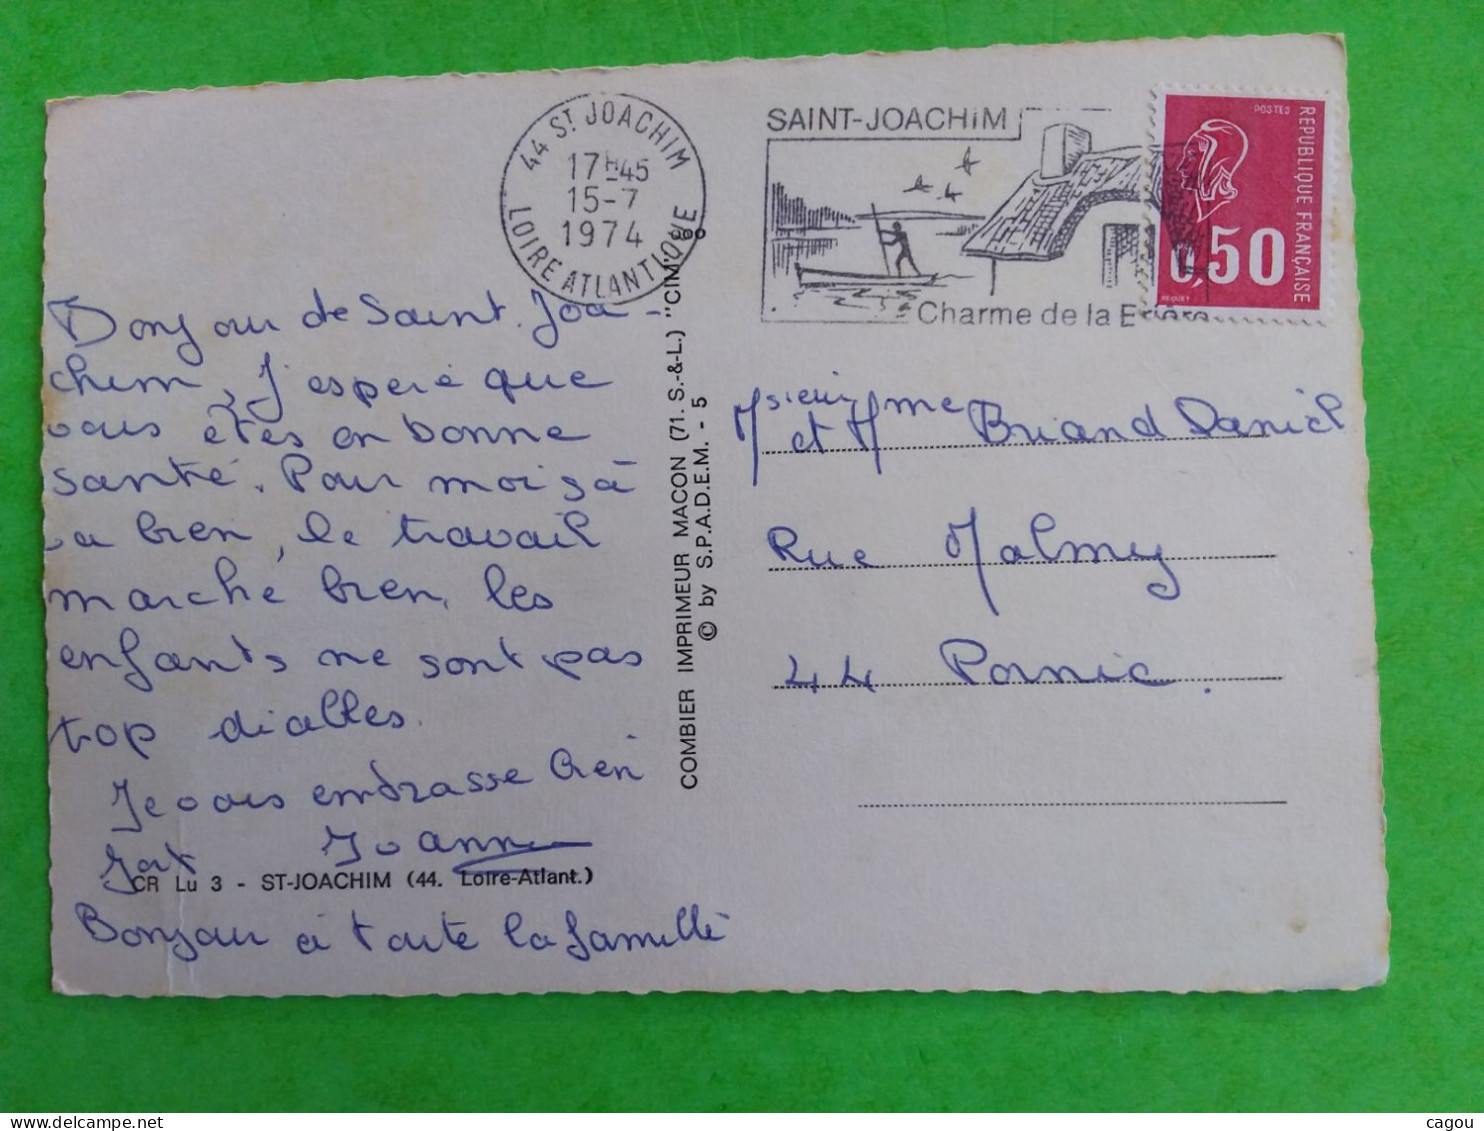 44 ST JOACHIM
17H45
15-7
1974
LOIRE ATLANTIQUE
SAINT-JOACHIM
Charme de la
POSTES
REPUBLIQUE FRANÇAISE
0,50
BEQUET
Bonjour de Saint Joa-
chim, J'espere que
vous êtes en bonne
santé. Pour moi sà
va bien, le travail
marché bien, les
enfants ne sont pas
top diables.
Je vous embrasse bien
fort Joanne
CR Lu 3 - ST-JOACHIM (44. Loire-Atlant.)
Bonjour à toute la famille
COMBIER IMPRIMEUR MACON (71. S.-&-L.) "CIM"
© by S.P.A.D.E.M. - 5
Msieur
et Mme Briand Daniel
Rue Malmy
44 Pornic.
cagou